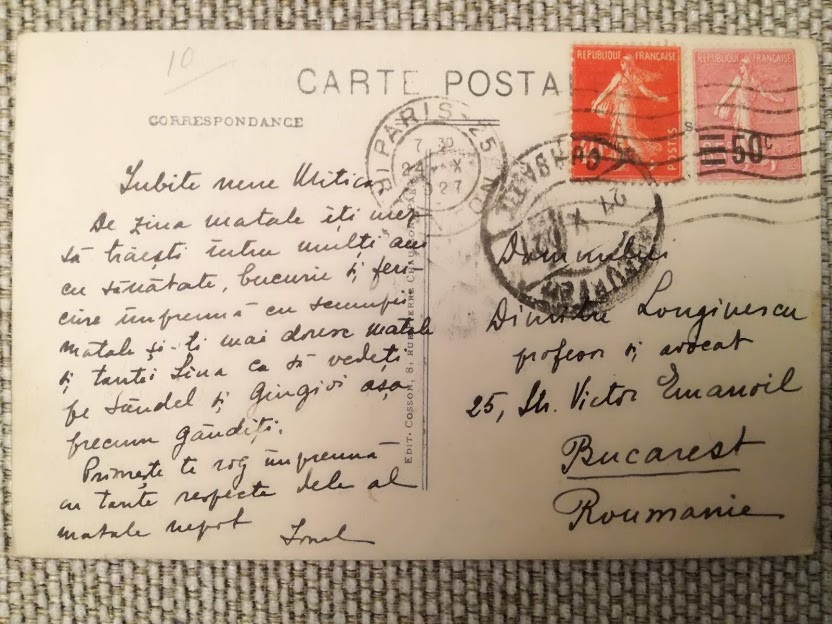 10
CARTE POSTA
CORRESPONDANCE
Iubite nene Mitica
De ziua matale îți urez
să trăești întru mulți ani
cu sănătate, bucurie și feri-
cire împreună cu scumpii
matale și-ți mai doresc matale
și tantei Lina ca să vedeți
pe Săndel și Gingivi așa
precum gândiți.
Primește te rog împreună
cu tante respecte dela al
matale nepot Ionel
Edit. COSSON, 8, RUE PIERRE CHAUSSON, PARIS
PARIS 25
7 30
24 X
1927
REPUBLIQUE FRANÇAISE
POSTES
REPUBLIQUE FRANÇAISE
50c
Domnului
Dimitrie Longinescu
profesor și avocat
25, Str. Victor Emanoil
Bucarest
Roumanie